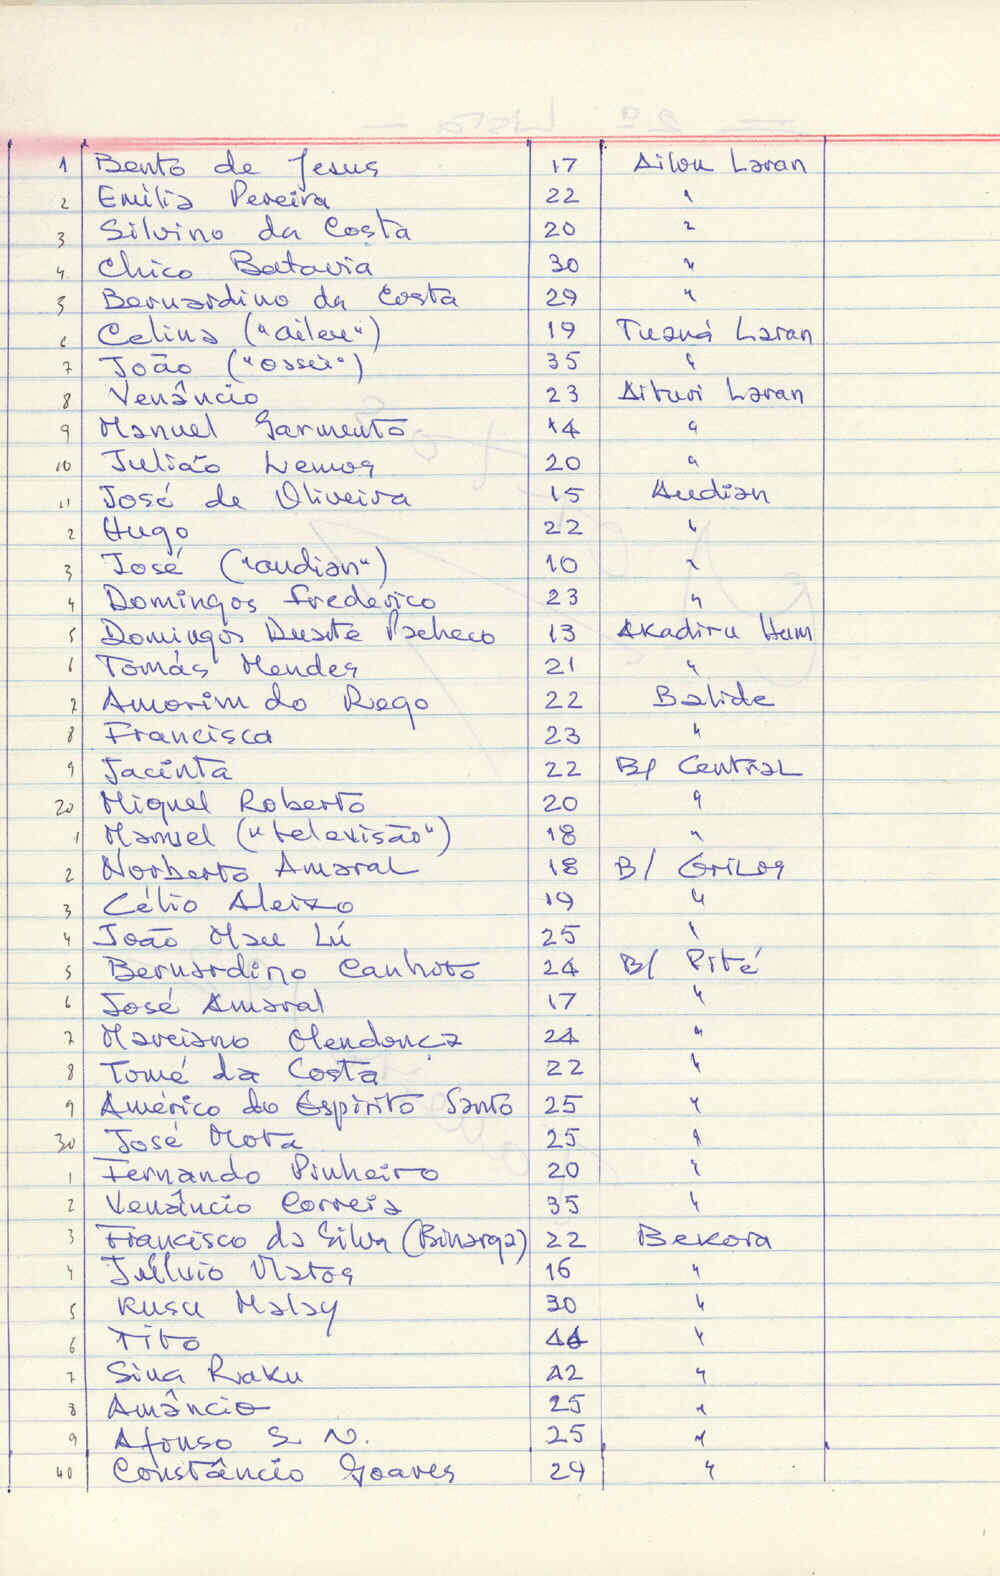 1 Bento de Jesus 17 Ailou Laran
2 Emília Pereira 22 "
3 Silvino da Costa 20 "
4 Chico Batavia 30 "
5 Bernardino da Costa 29 "
6 Celina ("aileu") 19 Tuaná Laran
7 João ("ossú") 35 "
8 Venâncio 23 Aituri Laran
9 Manuel Sarmento 14 "
10 Julião Lemos 20 "
11 José de Oliveira 15 Audian
2 Hugo 22 "
3 José ("audian") 10 "
4 Domingos Frederico 23 "
5 Domingos Duarte Pacheco 13 Akadiru Hum
6 Tomás Mendes 21 "
7 Amorim do Rego 22 Balide
8 Francisca 23 "
9 Jacinta 22 B/ Central
20 Miguel Roberto 20 "
1 Manuel ("televisão") 18 "
2 Norberto Amaral 18 B/ Grilos
3 Célio Aleixo 19 "
4 João Mau Lú 25 "
5 Bernardino Canhoto 24 B/ Pité
6 José Amaral 17 "
7 Marciano Mendonça 24 "
8 Tomé da Costa 22 "
9 Américo do Espírito Santo 25 "
30 José Mota 25 "
1 Fernando Pinheiro 20 "
2 Venâncio Correia 35 "
3 Francisco da Silva (Binaraga) 22 Bekora
4 Matos 16 "
5 Kusu Malay 30 "
6 Tito "
7 Sina Raku 42 "
8 Amâncio 25 "
9 Afonso S. N. 25 "
40 Constâncio Soares 29 "